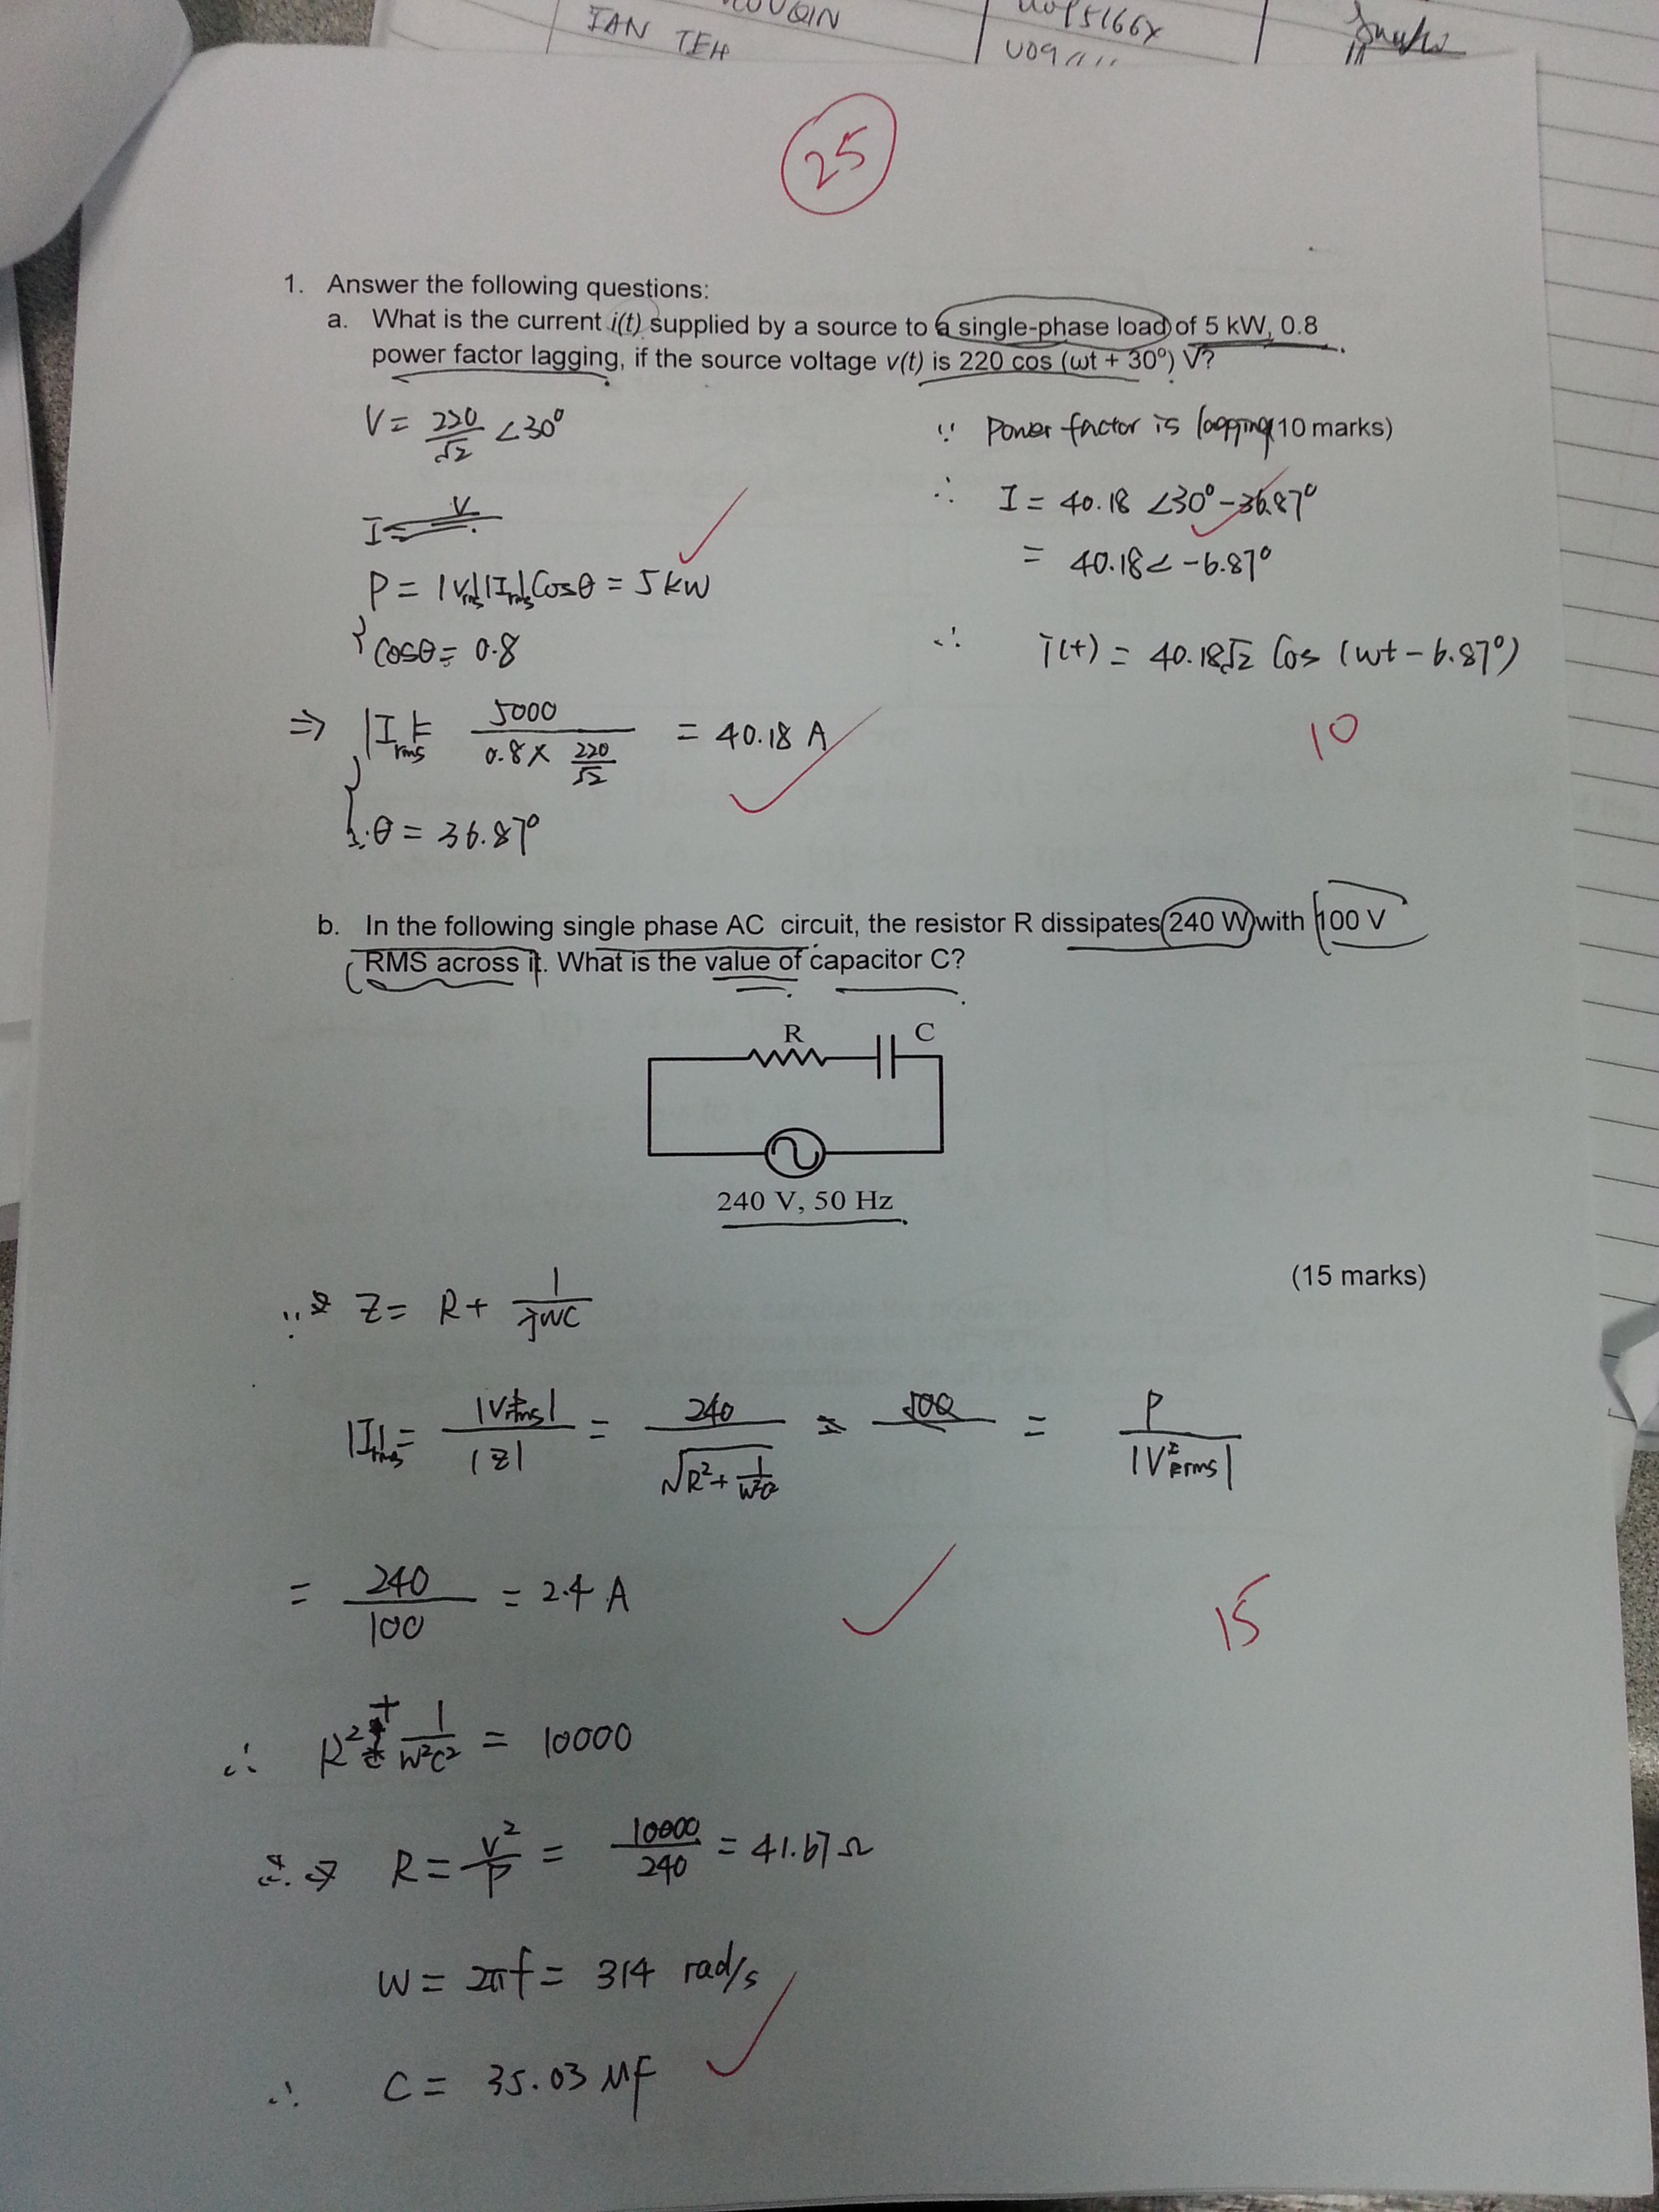 IAN TEH
25
1. Answer the following questions:
a. What is the current i(t) supplied by a source to a single-phase load of 5 kW, 0.8
power factor lagging, if the source voltage v(t) is 220 cos (ωt + 30°) V?
(10 marks)
V = 220/√2 ∠30°
I = V
P = |Vrms||Irms|Cosθ = 5 kW
Cosθ = 0.8
⇒ |Irms| = 5000 / (0.8 × 220/√2) = 40.18 A
∴ θ = 36.87°
∵ Power factor is lagging
∴ I = 40.18 ∠30° - 36.87°
= 40.18 ∠ -6.87°
∴ i(t) = 40.18√2 Cos (wt - 6.87°)
10
b. In the following single phase AC circuit, the resistor R dissipates 240 W with 100 V
RMS across it. What is the value of capacitor C?
R C
240 V, 50 Hz
(15 marks)
∵ Z = R + 1/jwC
|Irms| = |Vrms| / |Z| = 240 / √(R² + 1/w²C²) = P / |VRrms|
= 240/100 = 2.4 A
15
∴ R² + 1/w²C² = 10000
R = V²/P = 10000/240 = 41.67 Ω
W = 2πf = 314 rad/s
∴ C = 35.03 μF